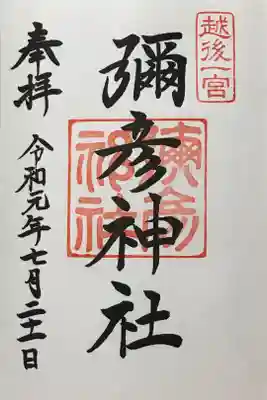 越後一宮
彌彦神社
奉拝
令和元年七月二十一日